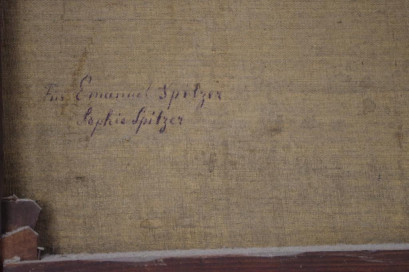 Für Emanuel Spitzer
Sophie Spitzer